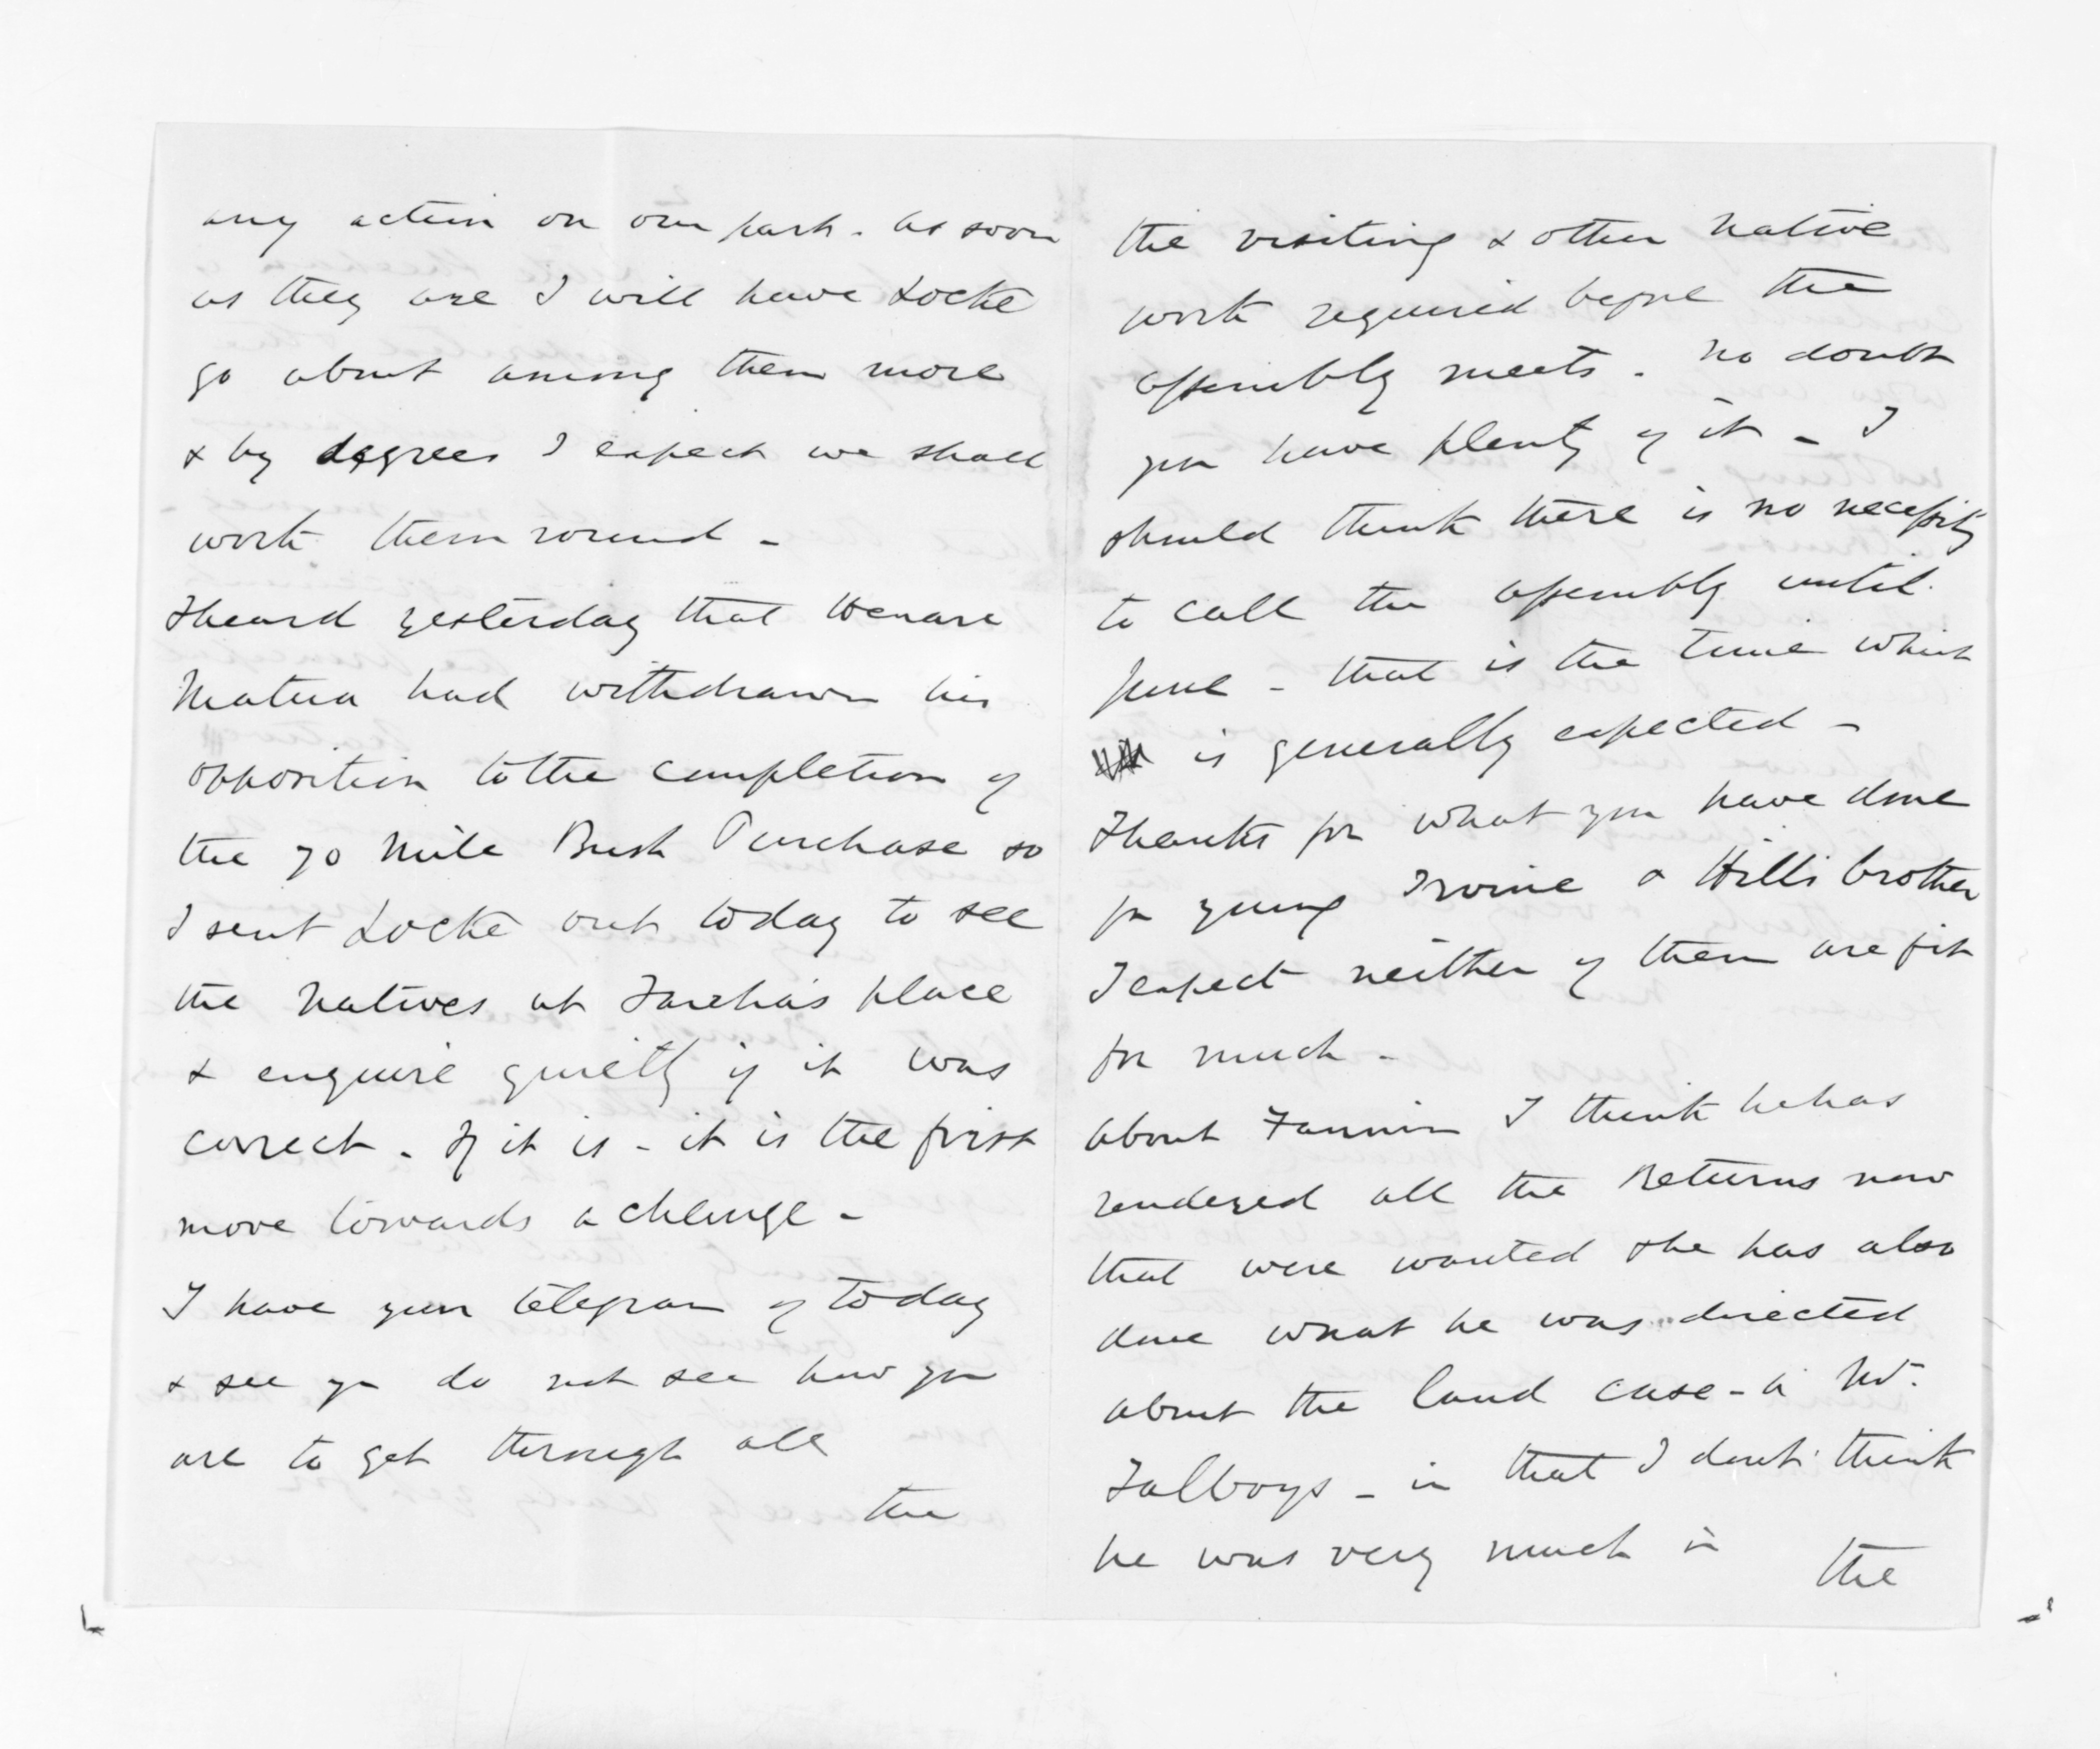 any action on our part. As soon
as they are I will have Locke
go about among them more
& by degrees I expect we shall
work them round -
I heard yesterday that Henare
Matua had withdrawn his
opposition to the completion of
the 70 Mile Bush Purchase so
I sent Locke out today to see
the Natives at Tareha's place
& enquire quietly if it was
correct. If it is - it is the first
move towards a change -
I have your telegram of today
& see you do not see how you
are to get through all
the
the visiting & other Native
work required before the
assembly meets. No doubt
you have plenty of it - I
should think there is no necessity
to call the assembly until
June - that is the time which
is generally expected -
Thanks for what you have done
for young Irvine & Hill's brother
I expect neither of them are fit
for much -
About Fannin I think he has
rendered all the Returns now
that were wanted & he has also
done what he was directed
about the land case - a Mr.
Tallboys - in that I don't think
he was very much in
the